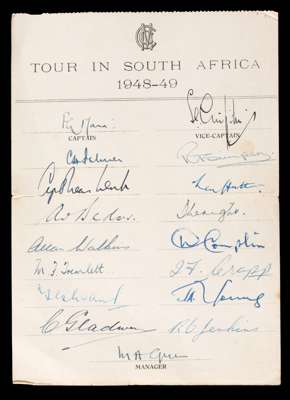 MCC
TOUR IN SOUTH AFRICA
1948-49
F G Mann: S C Griffith
CAPTAIN VICE-CAPTAIN
C H Palmer R T Simpson
Len Hutton
A V Bedser
Allan Watkins D Compton
M F Tremlett J F Crapp
J A Young
C Gladwin R O Jenkins
M A Green
MANAGER